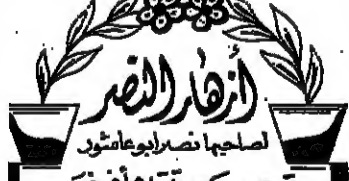 أزهار النصر
لصاحبها نصر ابو عاشور